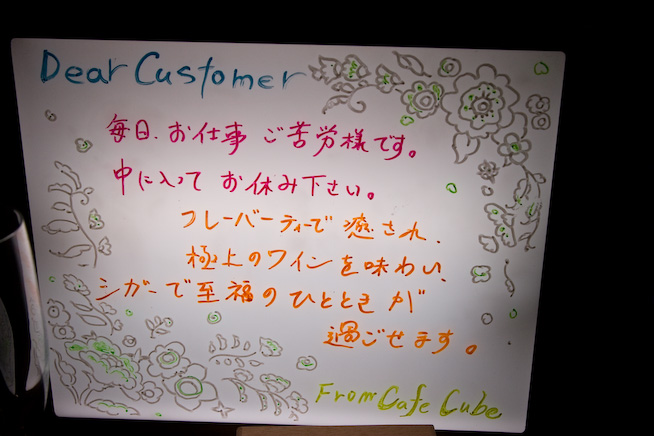 Dear Customer
毎日、お仕事 ご苦労様です。
中に入って お休み下さい。
フレーバーティーで 癒され、
極上のワインを味わい、
シガーで至福のひとときが
過ごせます。
From Cafe Cube